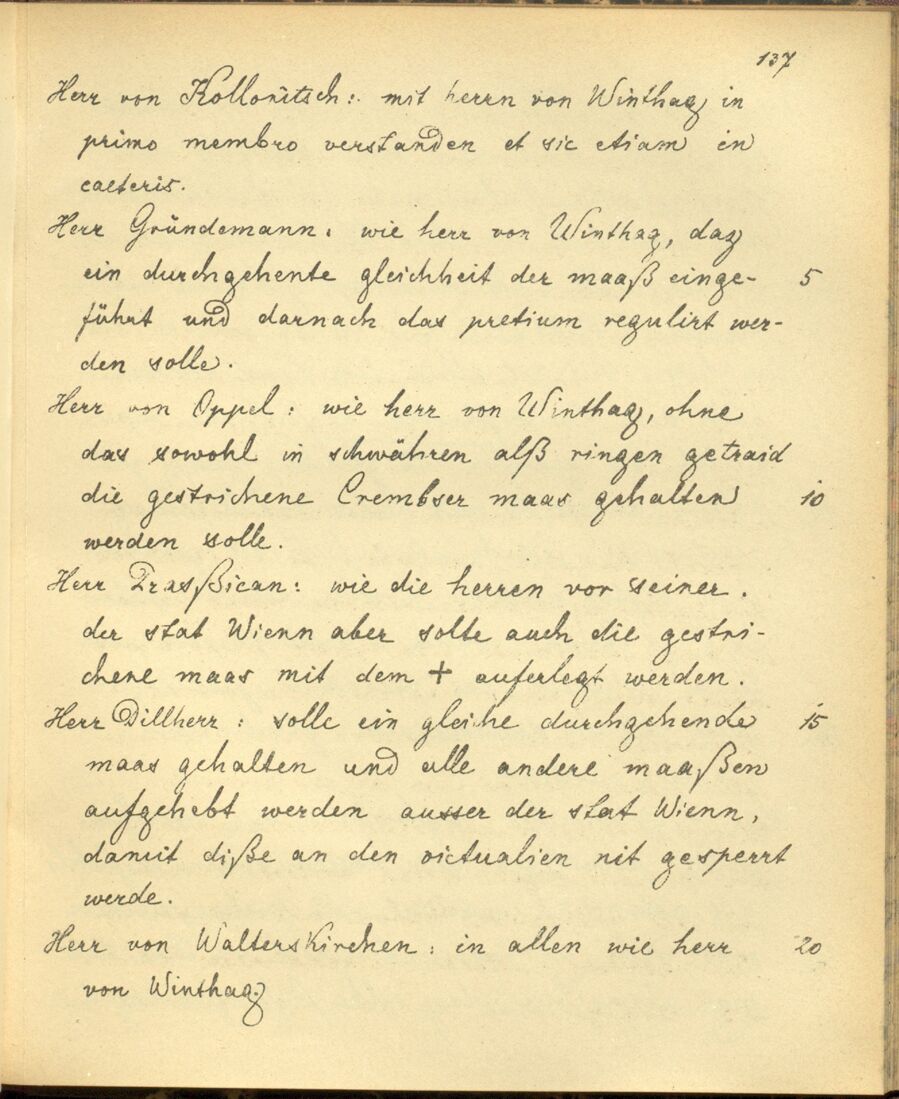 137
Herr von Kollonitsch: mit herrn von Winthag in
primo membro verstanden et sic etiam in
caeteris.
Herr Gründemann: wie herr von Winthag, daz
ein durchgehente gleichheit der maaß einge- 5
führt und darnach das pretium regulirt wer-
den solle.
Herr von Oppel: wie herr von Winthag, ohne
das sowohl in schwähren alß ringen getraid
die gestrichene Crembser maas gehalten 10
werden solle.
Herr Praßican: wie die herren vor seiner.
der stat Wienn aber solte auch die gestri-
chene maas mit dem + auferlegt werden.
Herr Dillherr: solle ein gleihe durchgehende 15
maas gehalten und alle andere maaßen
aufgehebt werden ausser der stat Wienn,
damit diße an den victualien nit gesperrt
werde.
Herr von Walterskirchen: in allen wie herr 20
von Winthag.